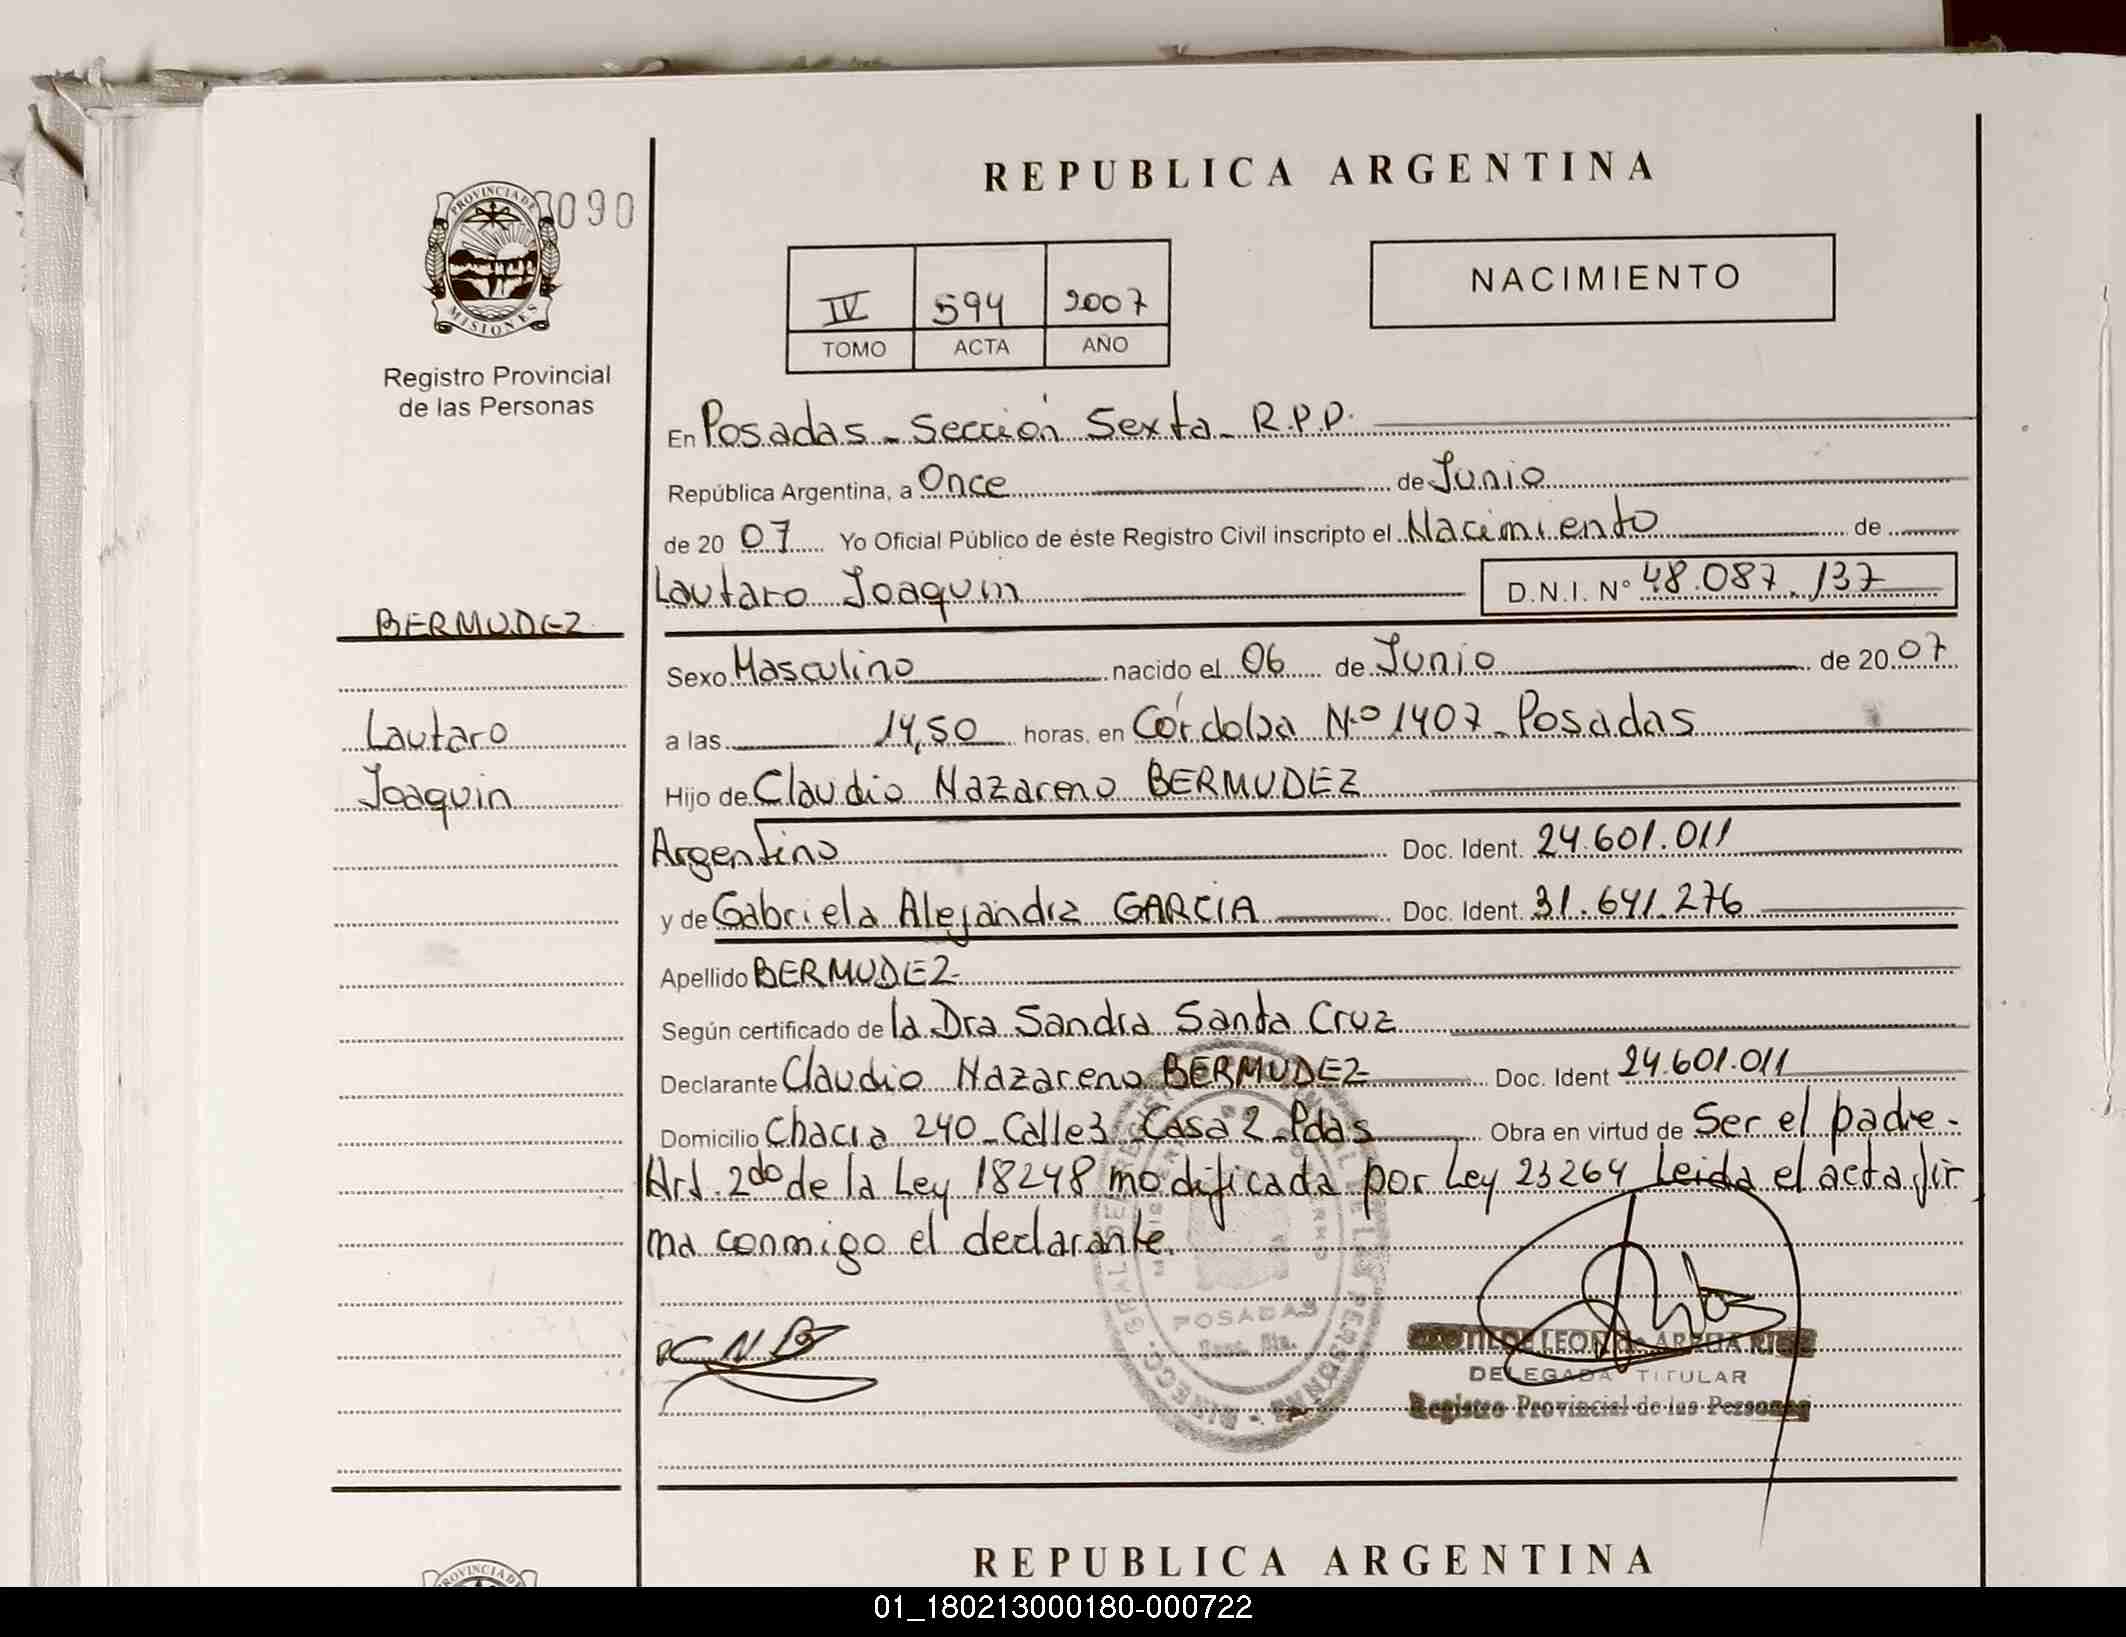 REPUBLICA ARGENTINA
PROVINCIA DE
MISIONES
090
Registro Provincial
de las Personas
IV 594 2007
TOMO ACTA AÑO
NACIMIENTO
En Posadas - Sección Sexta - R.P.P.
República Argentina, a Once de Junio
de 20 07 Yo Oficial Público de éste Registro Civil inscripto el Nacimiento de
Lautaro Joaquin D.N.I. N° 48.087.137
BERMUDEZ
Lautaro
Joaquin
Sexo Masculino nacido el 06 de Junio de 20 07
a las 14,50 horas, en Córdoba N.º 1407 - Posadas
Hijo de Claudio Nazareno BERMUDEZ
Argentino Doc. Ident. 24.601.011
y de Gabriela Alejandra GARCIA Doc. Ident. 31.641.276
Apellido BERMUDEZ-
Según certificado de la Dra Sandra Santa Cruz
Declarante Claudio Nazareno BERMUDEZ Doc. Ident 24.601.011
Domicilio Chacra 240 - Calle 3 Casa 2 - Pdas Obra en virtud de Ser el padre -
Art. 2do de la Ley 18248 modificada por Ley 23264 Leida el acta fir
ma conmigo el declarante.
POSADAS
DELEGADA TITULAR
Registro Provincial de las Personas
REPUBLICA ARGENTINA
01_180213000180-000722